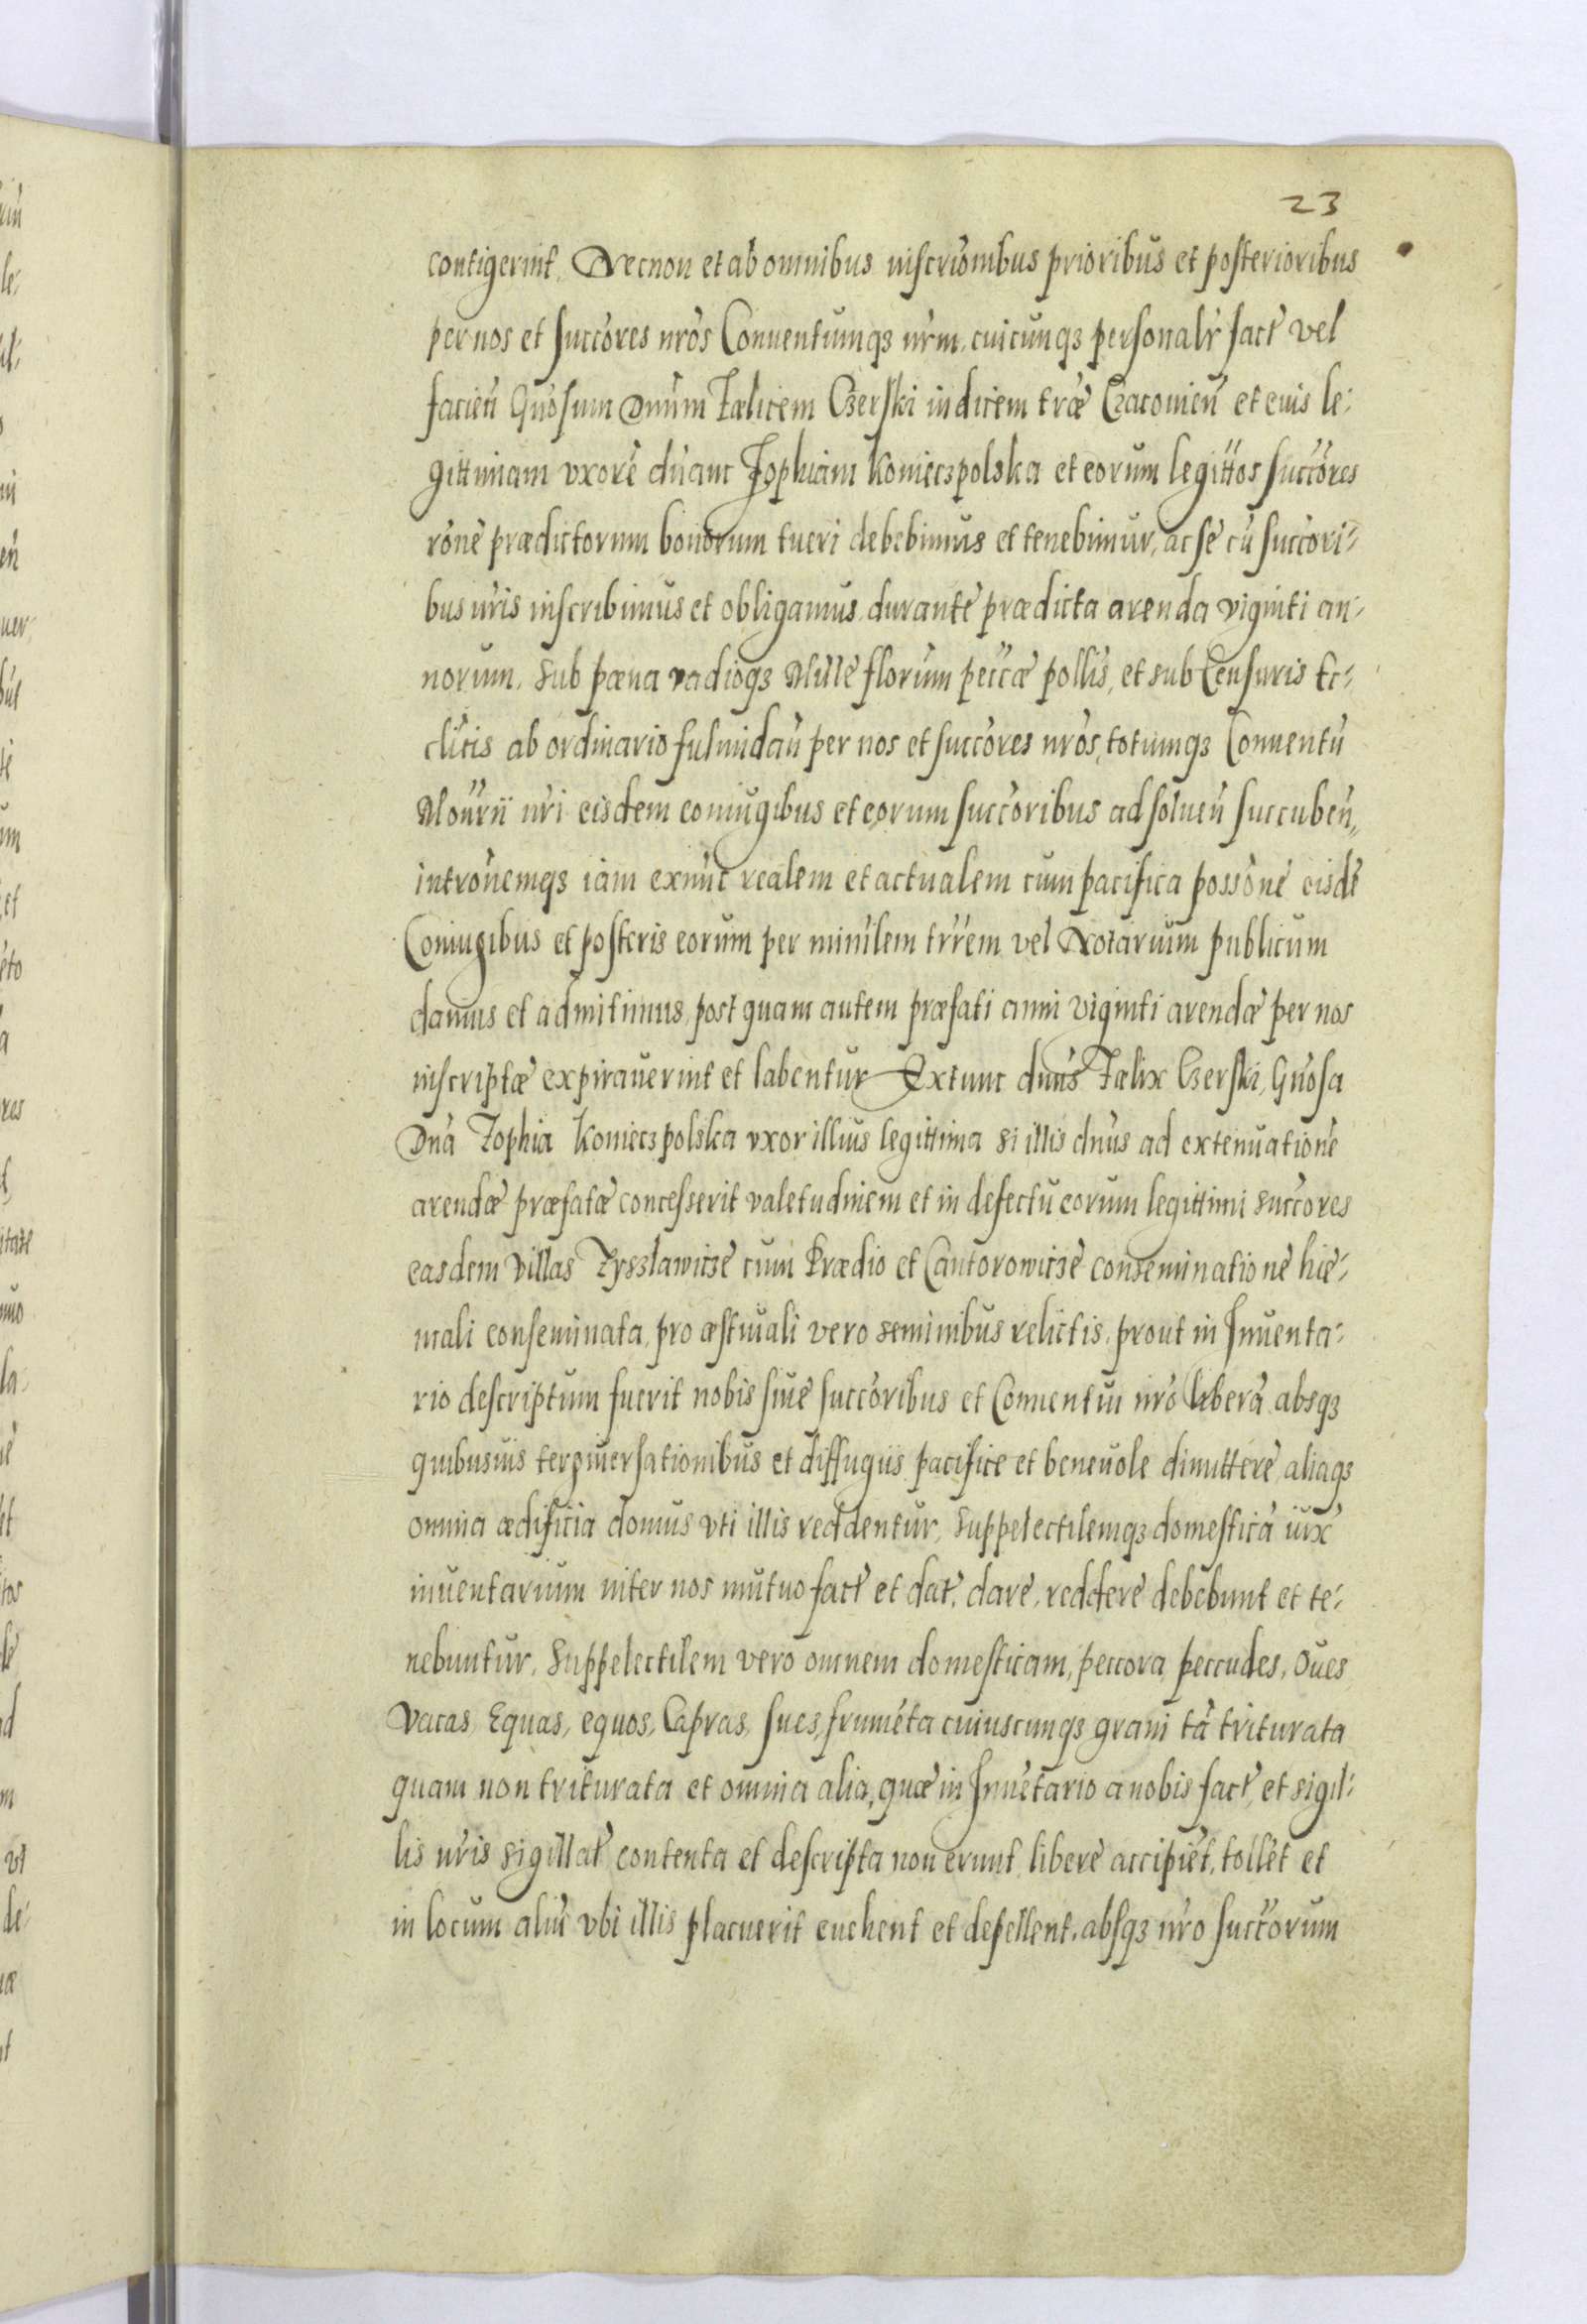 23
contigerint. Necnon et ab omnibus inscrionibus prioribus et posterioribus
per nos et succores nros Conuentumqз nrm, cuicunqз personalr fact vel
facien Gnosum Dnum Fælicem Czerski iudicem træ Cracouien et eius le:
gittimam vxore dnam Zophiam Koniecзpolska et eorum legittos succores
rone prædictorum bonorum tueri debebimus et tenebimur, ac se cu succori:
bus nris inscribimus et obligamus durante prædicta arenda viginti an:
norum. Sub pæna vadioqз Mille florum peccæ pollis, et sub Censuris Ec:
clicis ab ordinario fulmidan per nos et succores nros, totumqз Conuentu
Monrii nri eisdem coniugibus et eorum succoribus ad soluen succuben,,
intronemqз iam exnuc realem et actualem cum pacifica possone eisde
Coniugibus et posteris eorum per minilem trrem vel Notarium publicum
damus et admitimus, post quam autem præfati anni viginti arendæ per nos
inscriptæ expirauerint et labentur Extunc dnus Fælix Czerski, Gnosa
Dna Zophia Koniecзpolska vxor illius legittima si illis dnus ad extenuatione
arendæ præfatæ concesserit valetudinem et in defectu eorum legittimi succores
easdem villas Zyszlawicze cum Prædio et Cantorowicze conseminatione hie:
mali conseminata, pro æstiuali vero seminibus relictis, prout in Inuenta:
rio descriptum fuerit nobis siue succoribus et Conuentui nro libera absqз
quibusuis tergiuersationibus et diffugiis pacifice et beneuole dimittere, aliaqз
omnia ædificia domus vti illis reddentur, Suppelectilemqз domestica iux
inuentarium inter nos mutuo fact et dat. dare, reddere debebunt et te:
nebuntur. Suppelectilem vero omnem domesticam, peccora, peccudes, Oues
Vacas, Equas, equos, Capras, sues, frumeta cuiuscunqз grani ta triturata
quam non triturata et omnia alia, quæ in Inuetario a nobis fact, et sigil:
lis nris sigillat contenta et descripta non erunt libere accipiet, tollet et
in locum aliu vbi illis placuerit euehent et depellent, absqз nro succorum